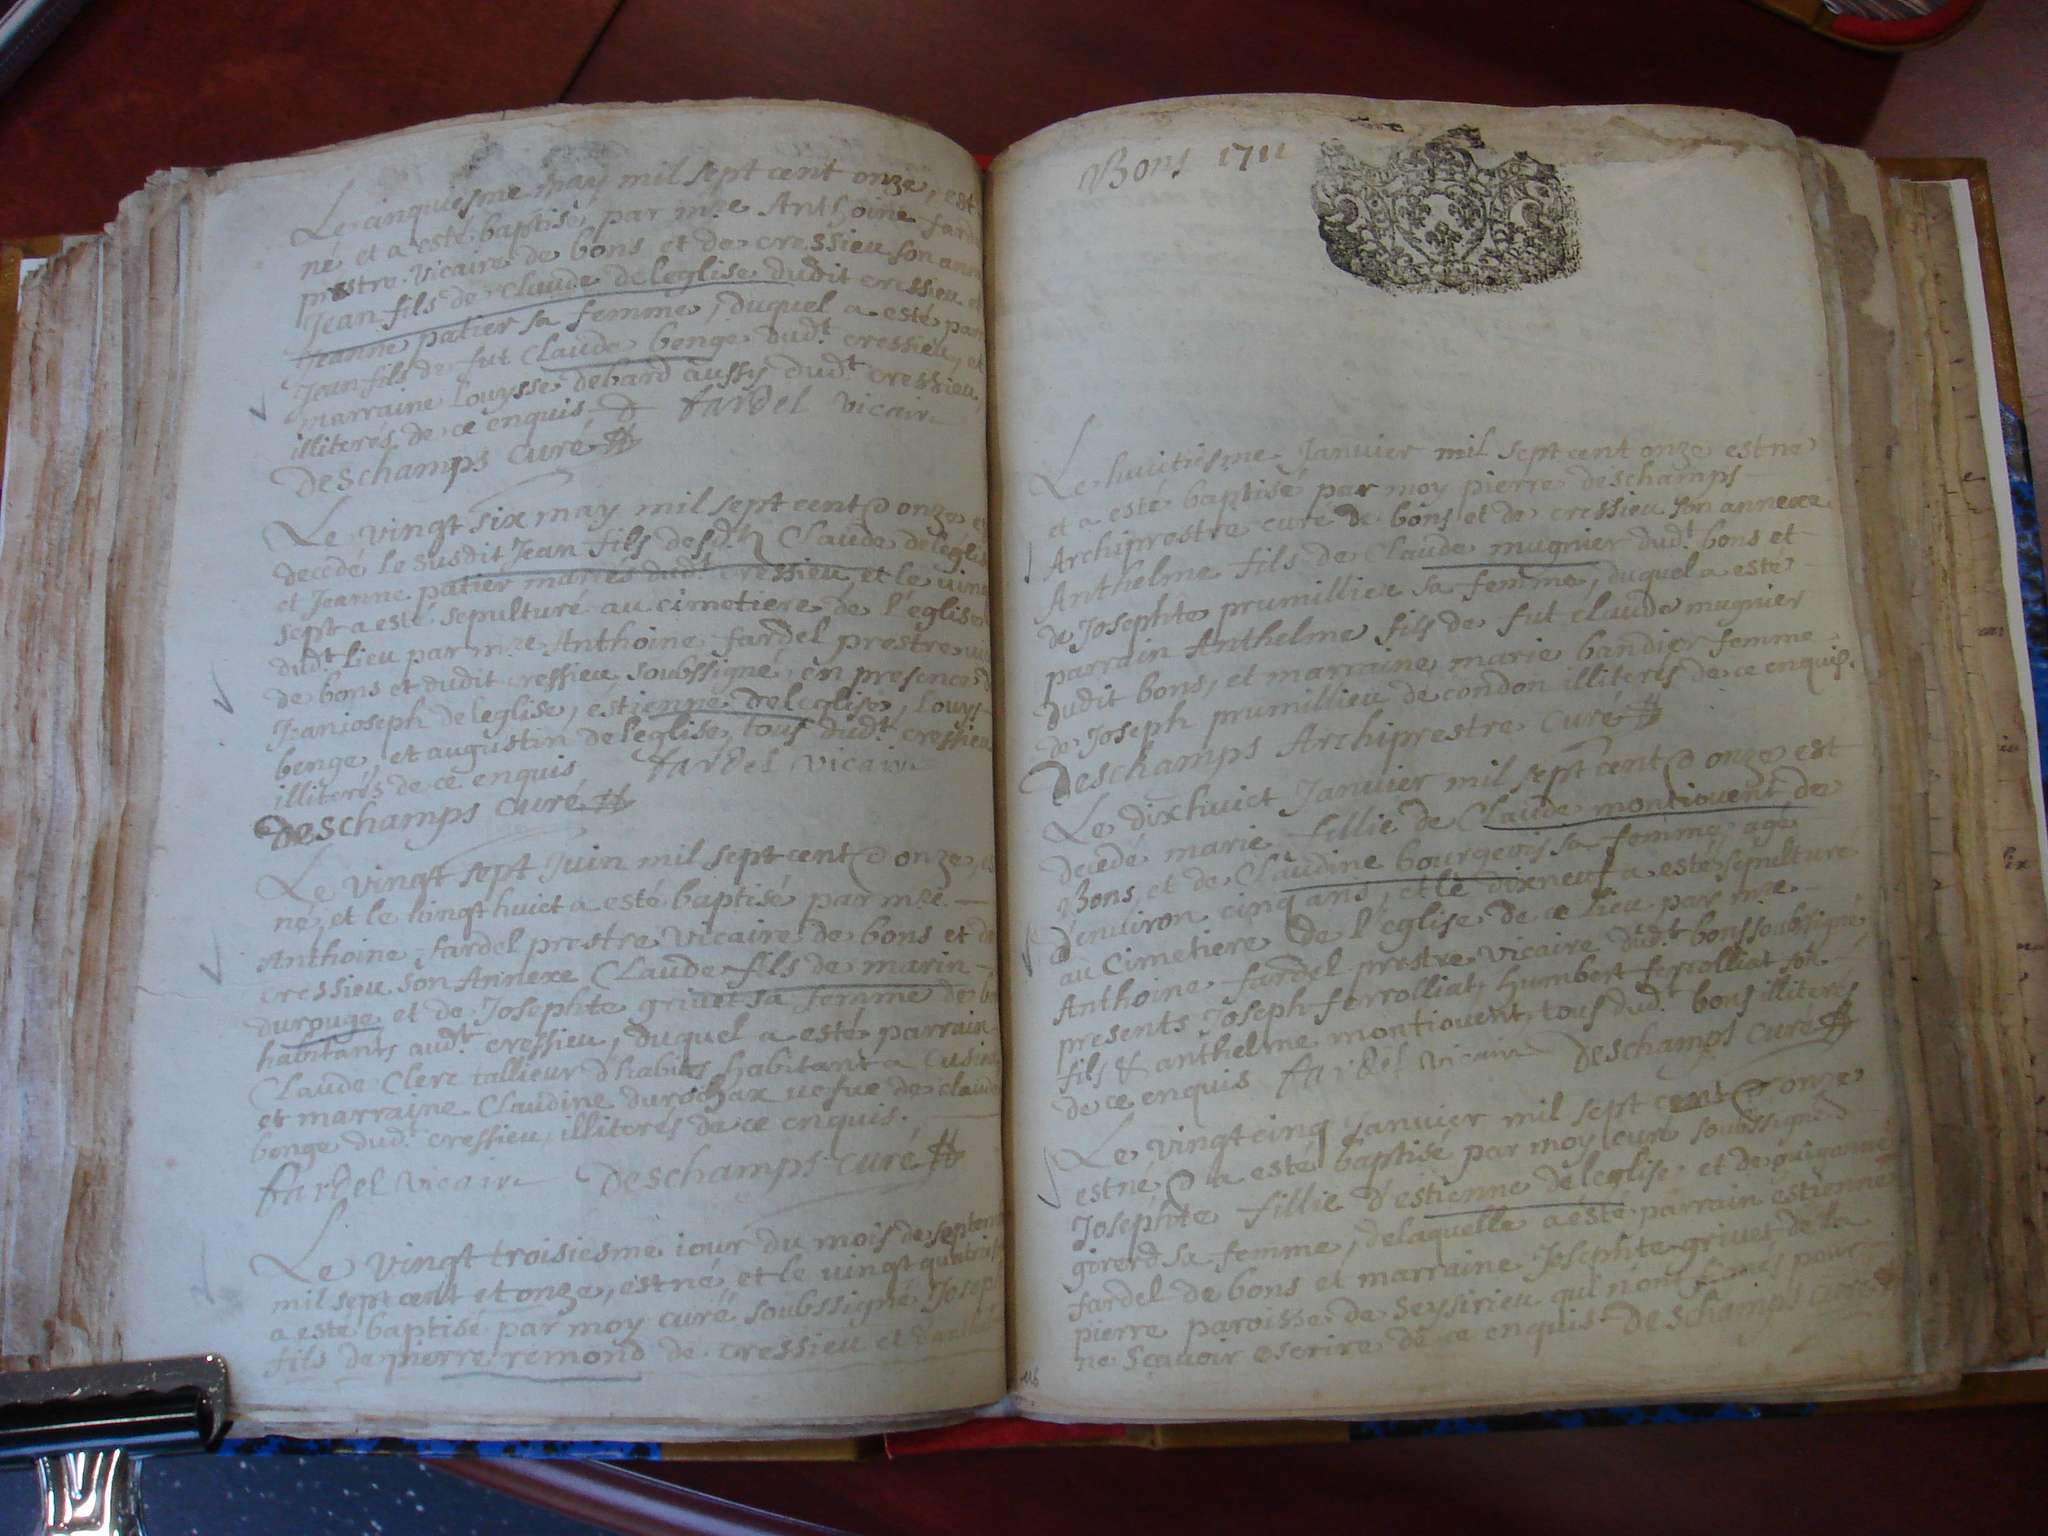 Le cinquiesme may mil sept cent onze, est
né et a esté baptisé par mre Anthoine farde
prestre vicaire de bons et de cressieu son ann
Jean fils de claude deleglise dudit cressieu et
Jeanne patier sa femme, duquel a esté par
Jean fils de fut Claude benge dudt cressieu, et
marraine Louysse debard aussy dudt cressieu,
illiterés de ce enquis fardel vicaire
Deschamps curé
Le vingt six may mil sept cent & onze e
decedé le susdit Jean fils desdts Claude deleglis
et Jeanne patier mariés dudt cressieu et le vingt
sept a esté sepulturé au cimetiere de l'eglise
dudt lieu par mre Anthoine fardel prestre vic
de bons et dudit cressieu, soubssigné, en presence d
Jean joseph deleglise, estienne deleglise, Louys
benge, et augustin deleglise, tous dudt cressieu
illiterés de ce enquis fardel vicaire
Deschamps curé
Le vingt sept Juin mil sept cent & onze, es
né, et le vingt huict a esté baptisé par mre
Anthoine fardel prestre vicaire de bons et de
cressieu son Annexe Claude fils de marin
durouge et de Josephte grivet sa femme de b
habitants audt cressieu, duquel a esté parrain
Claude Clerc tallieur d'habits habitant a Cusi
et marraine Claudine durochax vefve de claude
benge dudt cressieu, illiterés de ce enquis.
fardel vicaire Deschamps curé
Le vingt troisiesme iour du mois de septem
mil sept cent et onze, est né, et le vingt quatries
a esté baptisé par moy curé soubssigné Joseph
fils de pierre remond de cressieu et d'anth
Bons 1711
Le huitiesme Janvier mil sept cent onze est né
et a esté baptisé par moy pierre deschamps
Archiprestre curé de bons et de cressieu son annexe
Anthelme fils de Claude mugnier dudt bons et
de Josephte prumillieu sa femme, duquel a esté
parrain Anthelme fils de fut claude mugnier
dudit bons, et marraine marie bandier femme
de Joseph prumillieu de condon illiterés de ce enquis.
Deschamps Archiprestre curé
Le dix huict Janvier mil sept cent & onze est
decedé marie fillie de Claude montiouent de
Bons, et de Claudine bourgeois sa femme, agé
d'environ cinq ans, et le dixneuf a esté sepulturé
au Cimetiere de l'eglise de ce lieu par mre
Anthoine fardel prestre vicaire dudt bons soubsigné
presents Joseph ferrolliat, humbert ferrolliat son
fils & anthelme montiouent, tous dudt bons illiterés
de ce enquis fardel vicaire Deschamps curé
Le vingt cinq Janvier mil sept cent & onze
est né & a esté baptisé par moy curé soubssigné
Josephte fillie d'estienne deleglise et de guigonne
girerd sa femme, de laquelle a esté parrain estienne
fardel de bons et marraine Josephte grivet de la
pierre paroisse de Seysirieu qui n'ont signés pour
ne sçavoir escrire de ce enquis. Deschamps curé